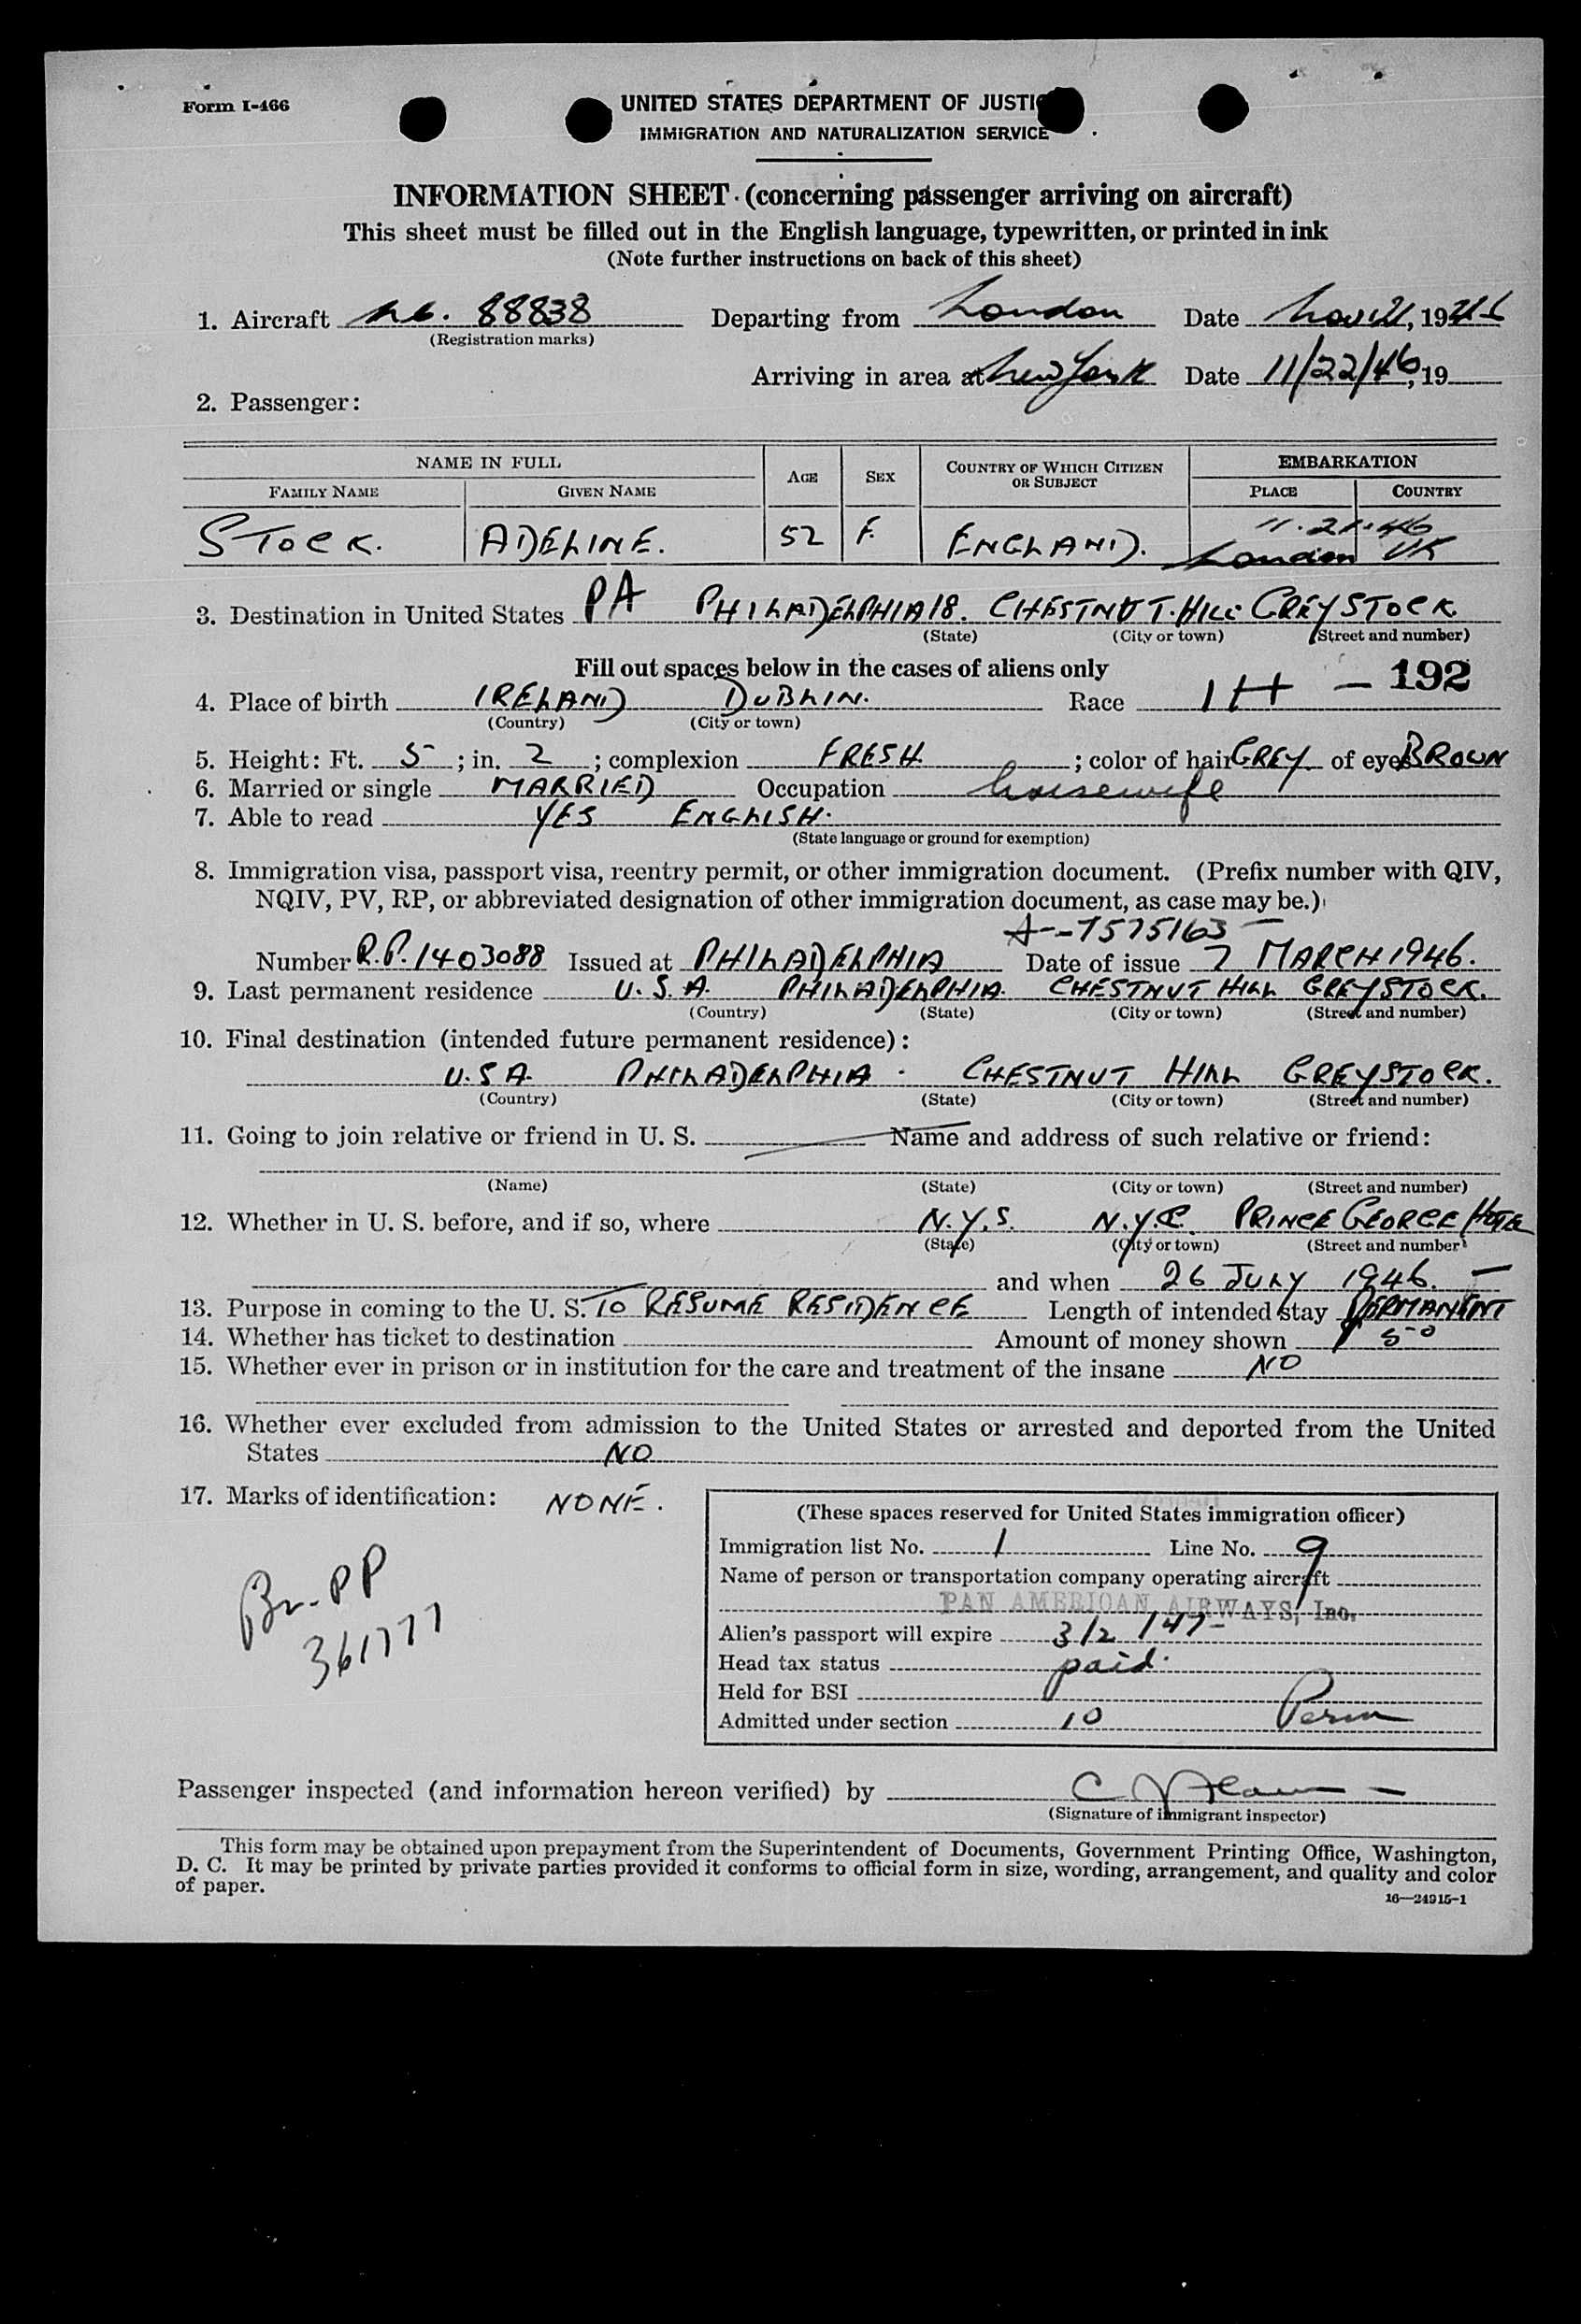 Form I-466
UNITED STATES DEPARTMENT OF JUSTIC
IMMIGRATION AND NATURALIZATION SERVICE
INFORMATION SHEET (concerning passenger arriving on aircraft)
This sheet must be filled out in the English language, typewritten, or printed in ink
(Note further instructions on back of this sheet)
1. Aircraft nc. 88838 Departing from London Date Nov 21, 1946
(Registration marks)
Arriving in area at New York Date 11/22/46, 19
2. Passenger:
NAME IN FULL AGE SEX COUNTRY OF WHICH CITIZEN OR SUBJECT EMBARKATION
FAMILY NAME GIVEN NAME PLACE COUNTRY
11.21.46
STOCK. ADELINE. 52 F. ENGLAND. London UK
3. Destination in United States PA PHILADELPHIA 18. CHESTNUT. HILL. GREYSTOCK
(State) (City or town) (Street and number)
Fill out spaces below in the cases of aliens only
1H - 192
4. Place of birth IRELAND DUBLIN. Race
(Country) (City or town)
5. Height: Ft. 5 ; in. 2 ; complexion FRESH ; color of hair GREY of eyes BROWN
6. Married or single MARRIED Occupation housewife
7. Able to read YES ENGLISH.
(State language or ground for exemption)
8. Immigration visa, passport visa, reentry permit, or other immigration document. (Prefix number with QIV,
NQIV, PV, RP, or abbreviated designation of other immigration document, as case may be.)
A--7575163 -
Number R.P. 1403088 Issued at PHILADELPHIA Date of issue 7 MARCH 1946.
9. Last permanent residence U.S.A. PHILADELPHIA. CHESTNUT HILL GREYSTOCK.
(Country) (State) (City or town) (Street and number)
10. Final destination (intended future permanent residence):
U.S.A. PHILADELPHIA. CHESTNUT HILL GREYSTOCK.
(Country) (State) (City or town) (Street and number)
11. Going to join relative or friend in U. S. Name and address of such relative or friend:
(Name) (State) (City or town) (Street and number)
12. Whether in U. S. before, and if so, where N.Y.S. N.Y.C. PRINCE GEORGE HOTEL
(State) (City or town) (Street and number)
and when 26 JULY 1946. -
13. Purpose in coming to the U. S. TO RESUME RESIDENCE Length of intended stay PERMANENT
14. Whether has ticket to destination Amount of money shown 50
15. Whether ever in prison or in institution for the care and treatment of the insane NO
16. Whether ever excluded from admission to the United States or arrested and deported from the United
States NO
17. Marks of identification: NONE.
Br. PP
361777
(These spaces reserved for United States immigration officer)
Immigration list No. 1 Line No. 9
Name of person or transportation company operating aircraft
PAN AMERICAN AIRWAYS, Inc.
Alien's passport will expire 3/2/47
Head tax status paid.
Held for BSI
Admitted under section 10 Perm
Passenger inspected (and information hereon verified) by
(Signature of immigrant inspector)
This form may be obtained upon prepayment from the Superintendent of Documents, Government Printing Office, Washington,
D. C. It may be printed by private parties provided it conforms to official form in size, wording, arrangement, and quality and color
of paper.
16—24915-1